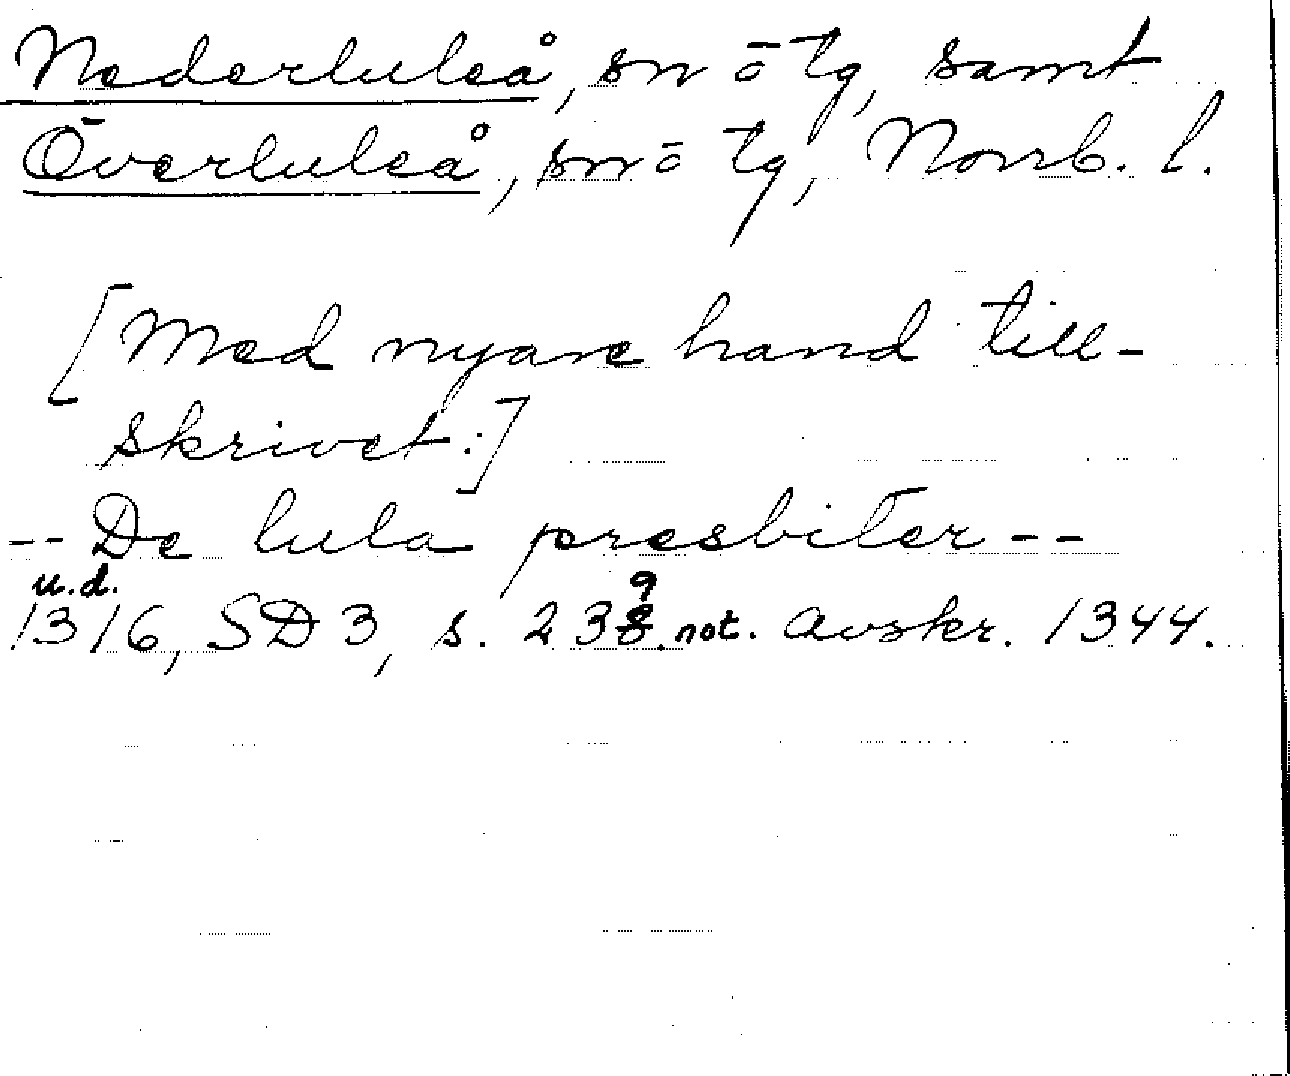 Nederluleå, sn ō tg, samt
Överluleå, sn ō tg, Norrb. l.
[Med nyare hand till-
skrivet:]
-- De lula presbiter --
u.d. 9
1316, SD 3, s. 238 not. Avskr. 1344.